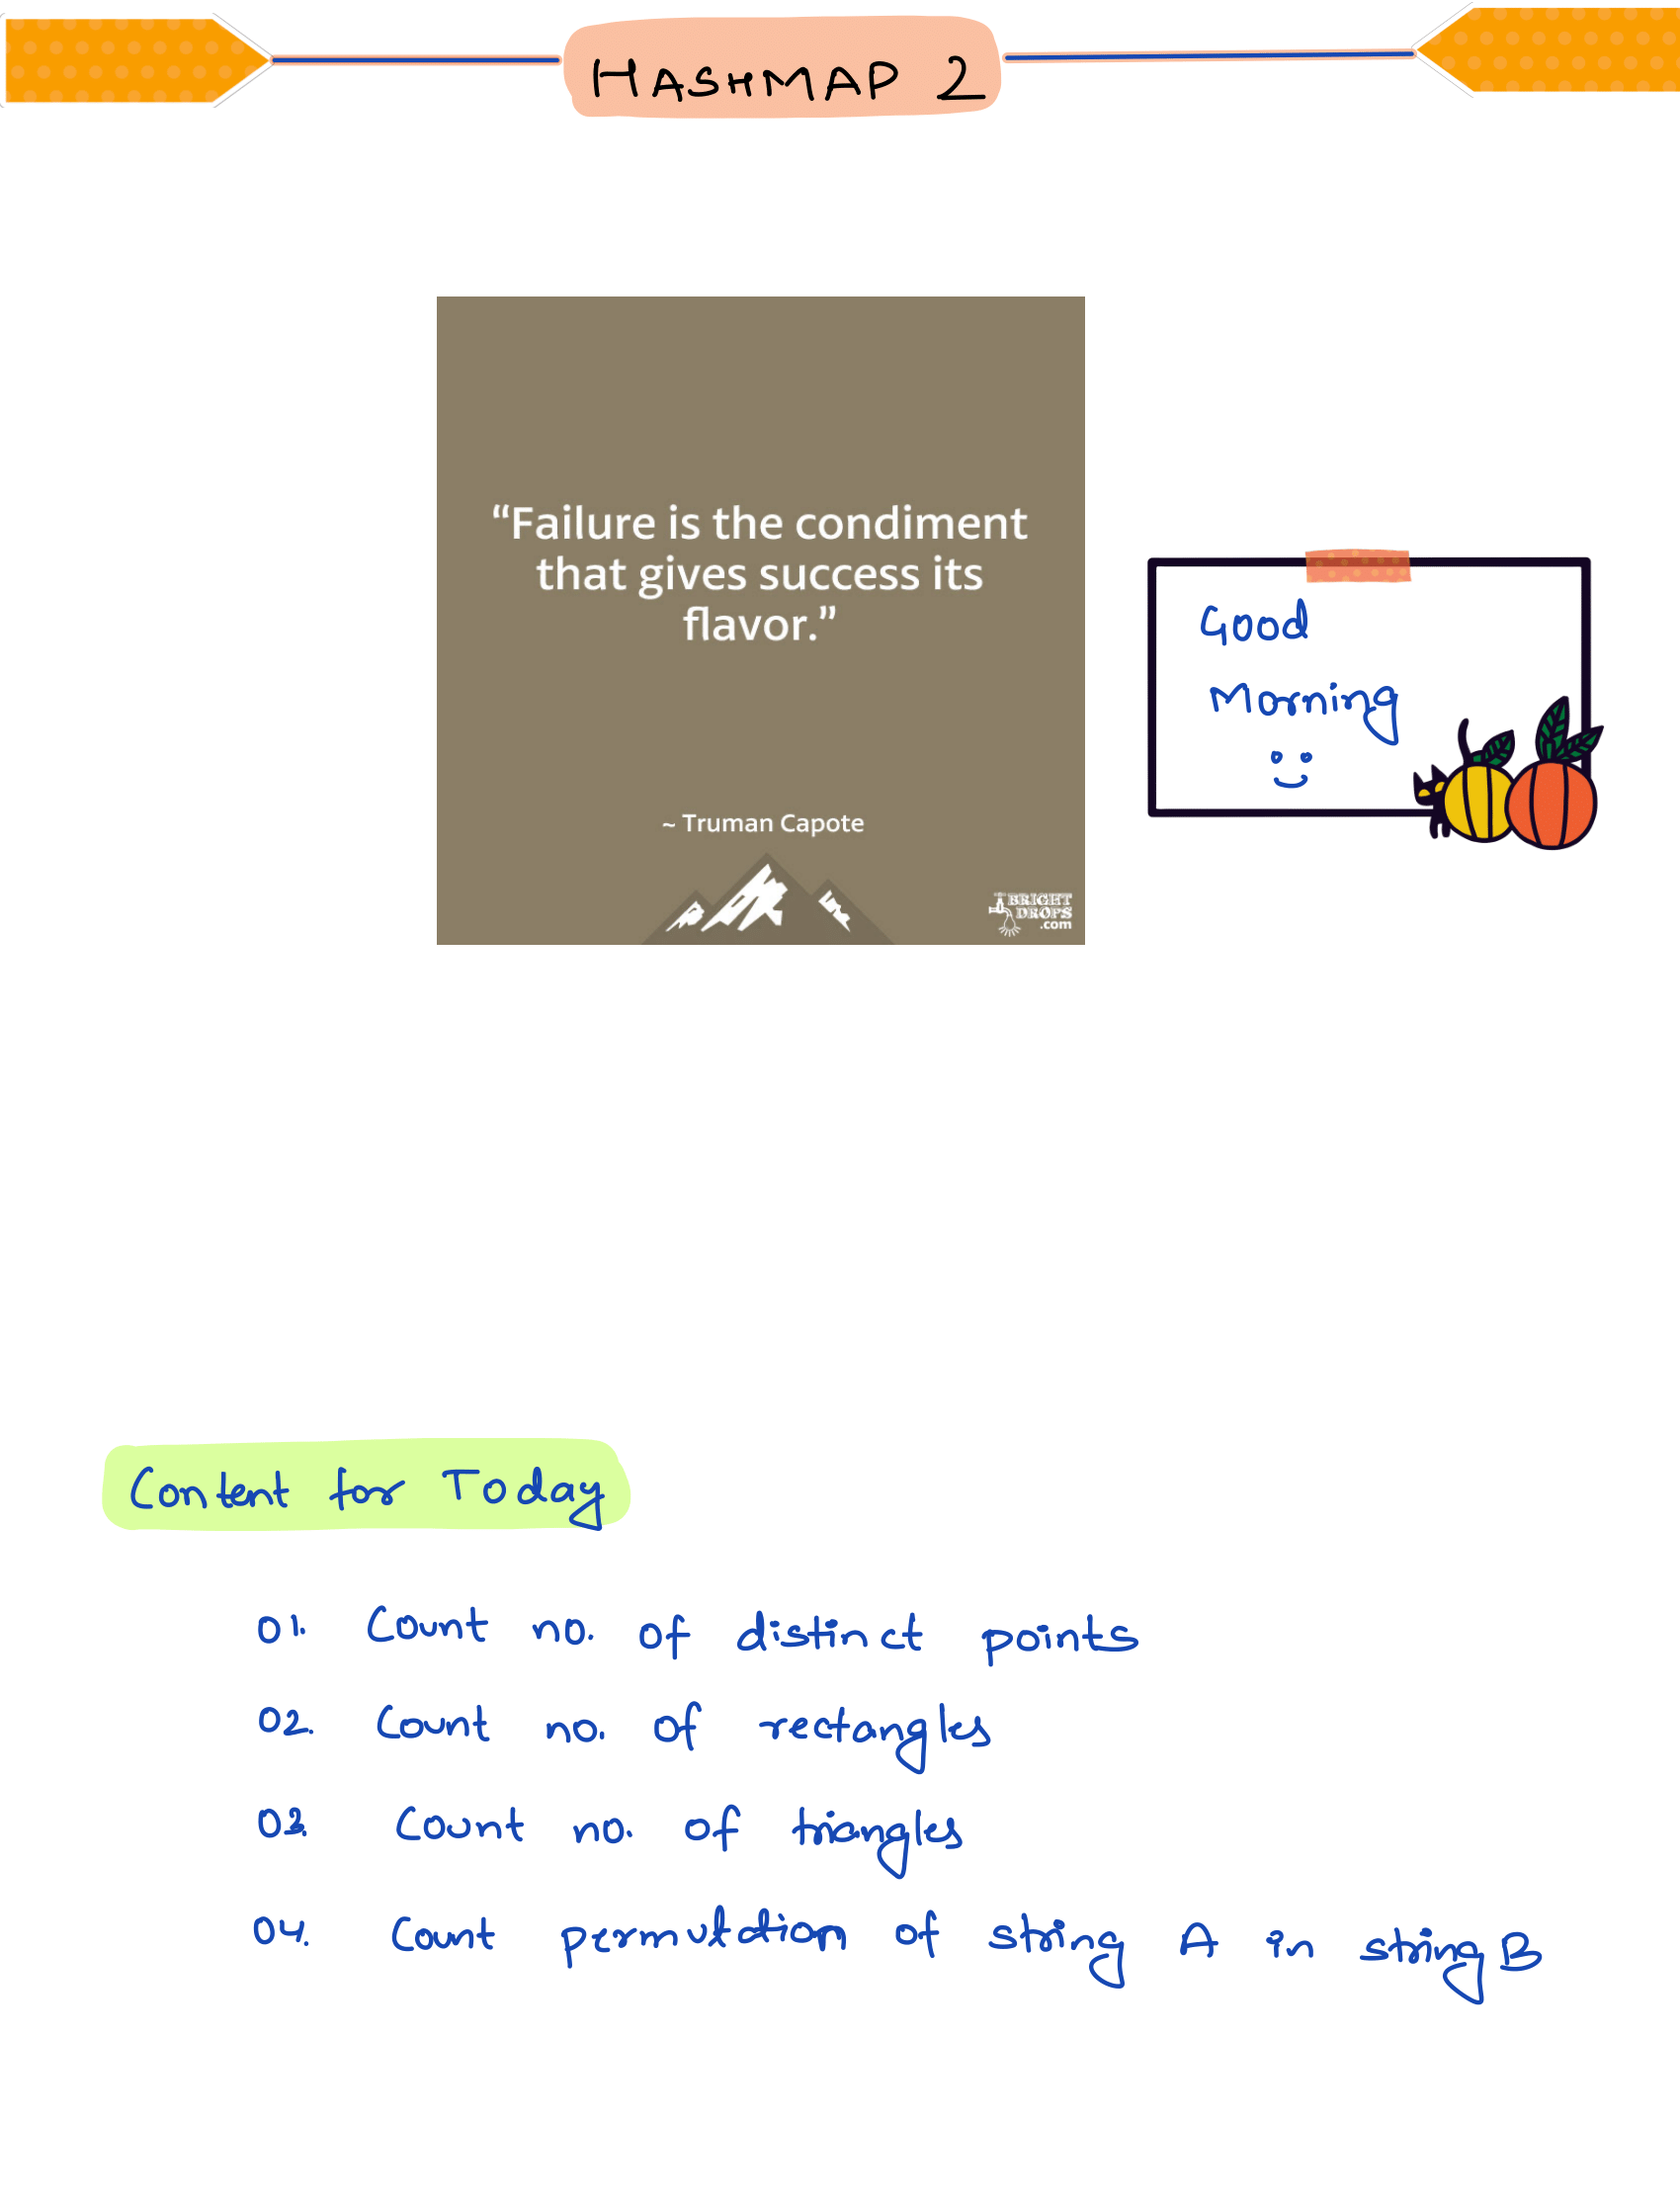 HASHMAP 2
“Failure is the condiment
that gives success its
flavor.”
~ Truman Capote
BRIGHT
DROPS
.com
Good
Morning
Content for Today
01. Count no. of distinct points
02. Count no. of rectangles
03. Count no. of triangles
04. Count permutation of string A in string B